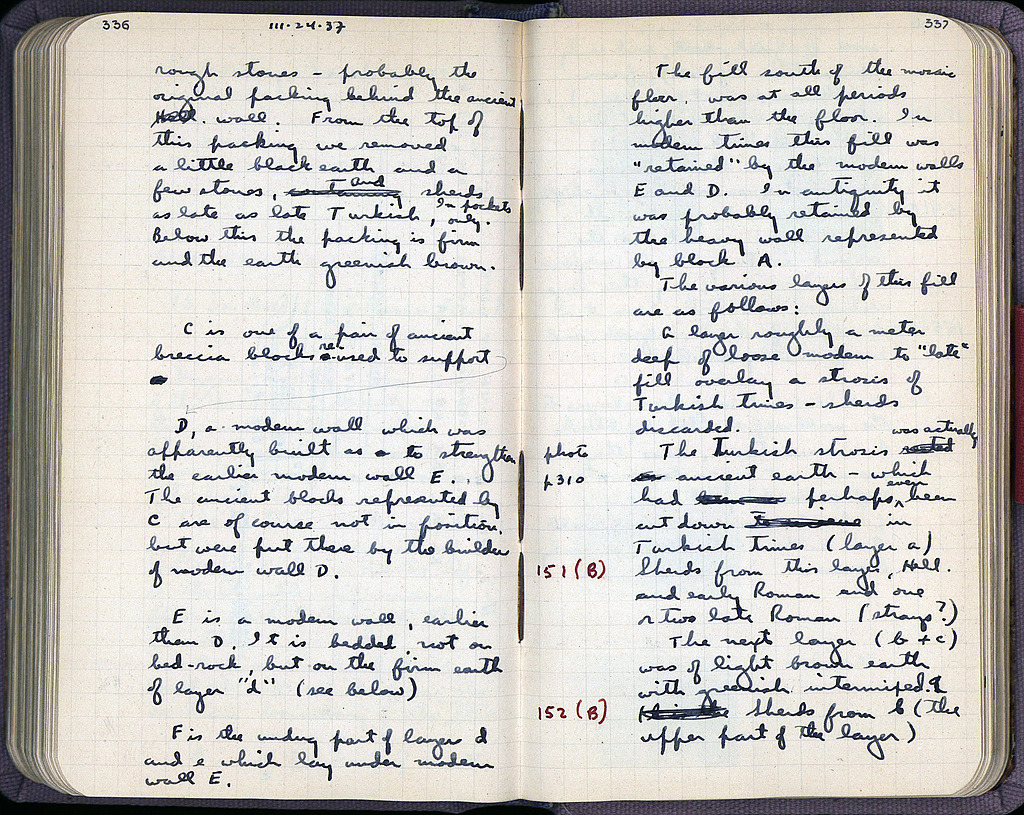 336
III·24·37
rough stones – probably the
original packing behind the ancient
Hell. wall. From the top of
this packing we removed
a little black earth and a
few stones, containing and sherds
as late as late Turkish, in pockets only.
Below this the packing is firm
and the earth greenish brown.
C is one of a pair of ancient
breccia blocks re-used to support
D, a modern wall which was
apparently built as a to strengthen
the earlier modern wall E.
The ancient blocks represented by
C are of course not in position,
but were put there by the builder
of modern wall D.
E is a modern wall, earlier
than D. It is bedded, not on
bed-rock, but on the firm earth
of layer "d" (see below)
F is the undug part of layers d
and e which lay under modern
wall E.
337
The fill south of the mosaic
floor, was at all periods
higher than the floor. In
modern times this fill was
"retained" by the modern walls
E and D. In antiquity it
was probably retained by
the heavy wall represented
by block A.
The various layers of this fill
are as follows:
A layer roughly a meter
deep of loose modern to "late"
fill overlay a strosis of
Turkish times – sherds
discarded.
photo The Turkish strosis rested was actually
p 310 on ancient earth – which
had perhaps even been
cut down in
Turkish times (layer a)
151 (B) Sherds from this layer, Hell.
and early Roman and one
or two late Roman (strays?)
The next layer (b + c)
was of light brown earth
with greenish intermixed.
152 (B) Sherds from b (the
upper part of the layer)